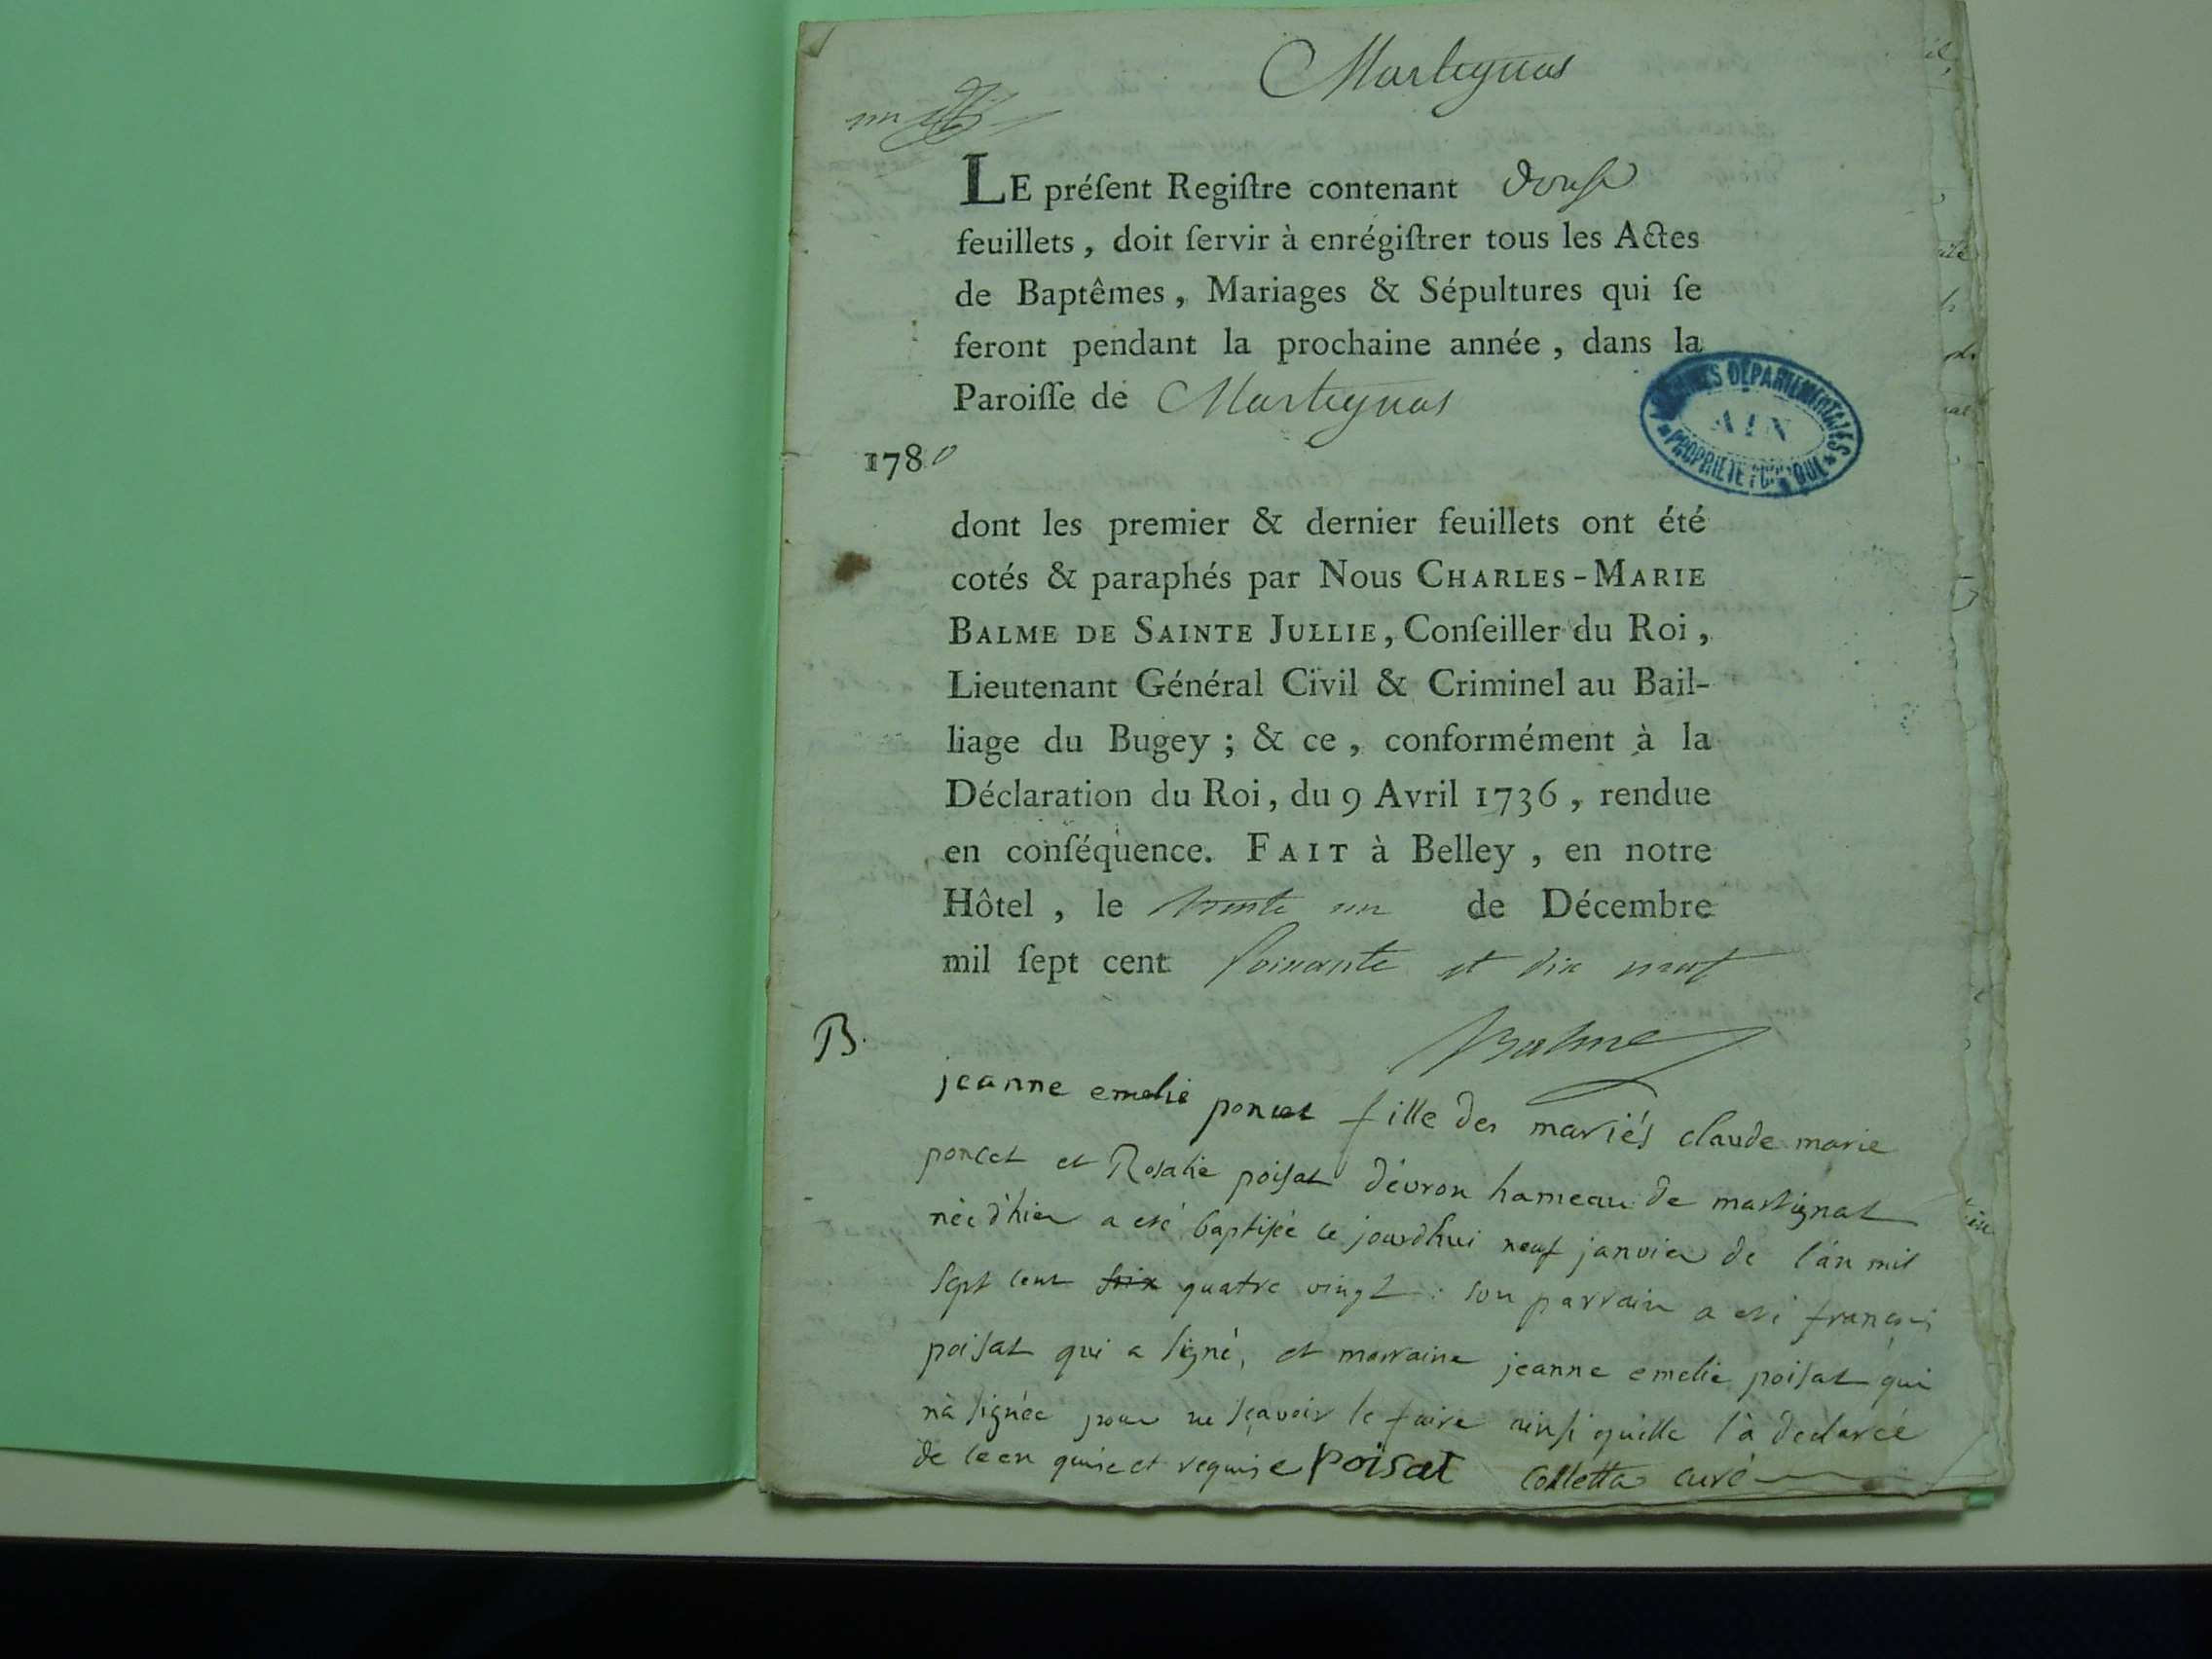 Martignas
un
LE préſent Regiſtre contenant douſe
feuillets, doit ſervir à enrégiſtrer tous les Actes
de Baptêmes, Mariages & Sépultures qui ſe
feront pendant la prochaine année, dans la
Paroiſſe de Martignas
ARCHIVES DÉPARTEMENTALES
AIN
PROPRIÉTÉ PUBLIQUE
1780
dont les premier & dernier feuillets ont été
cotés & paraphés par Nous CHARLES-MARIE
BALME DE SAINTE JULLIE, Conſeiller du Roi,
Lieutenant Général Civil & Criminel au Bail-
liage du Bugey ; & ce, conformément à la
Déclaration du Roi, du 9 Avril 1736, rendue
en conſéquence. FAIT à Belley, en notre
Hôtel, le trente un de Décembre
mil ſept cent ſoixante et dix neuf
Balme
B.
jeanne emelie poncet fille des mariés claude marie
poncet et Rosalie poisat d'évron hameau de martignat
née d'hier a eté baptisée ce jourdhui neuf janvier de l'an mil
sept cent quatre vingt : son parrain a eté françois
poisat qui a signé, et marraine jeanne emelie poisat qui
n'a signée pour ne sçavoir le faire ainsi quelle l'a declarée
de ce enquise et requise poisat Colletta curé